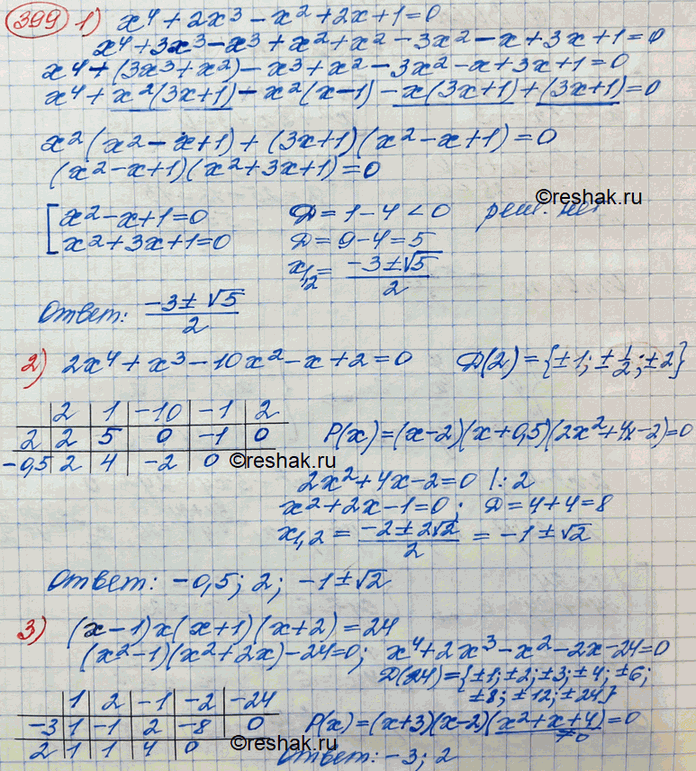 399 1) x⁴ + 2x³ - x² + 2x + 1 = 0
x⁴ + 3x³ - x³ + x² + x² - 3x² - x + 3x + 1 = 0
x⁴ + (3x³ + x²) - x³ + x² - 3x² - x + 3x + 1 = 0
x⁴ + x²(3x+1) - x²(x-1) - x(3x+1) + (3x+1) = 0
x²(x² - x + 1) + (3x+1)(x² - x + 1) = 0
(x² - x + 1)(x² + 3x + 1) = 0
©reshak.ru
[ x² - x + 1 = 0 D = 1 - 4 < 0 реш. нет
x² + 3x + 1 = 0 D = 9 - 4 = 5
x₁,₂ = (-3 ± √5)/2
Ответ: (-3 ± √5)/2
2) 2x⁴ + x³ - 10x² - x + 2 = 0 D(2) = {±1; ±1/2; ±2}
2 | 1 | -10 | -1 | 2
2 | 2 | 5 | 0 | -1 | 0 P(x) = (x-2)(x+0,5)(2x²+4x-2) = 0
-0,5 | 2 | 4 | -2 | 0
©reshak.ru
2x² + 4x - 2 = 0 |: 2
x² + 2x - 1 = 0; D = 4 + 4 = 8
x₁,₂ = (-2 ± 2√2)/2 = -1 ± √2
Ответ: -0,5; 2; -1 ± √2
3) (x-1)x(x+1)(x+2) = 24
(x²-1)(x²+2x) - 24 = 0; x⁴ + 2x³ - x² - 2x - 24 = 0
D(24) = {±1; ±2; ±3; ±4; ±6;
±8; ±12; ±24}
1 | 2 | -1 | -2 | -24
-3 | 1 | -1 | 2 | -8 | 0 P(x) = (x+3)(x-2)(x²+x+4) = 0
≠0
2 | 1 | 1 | 4 | 0
©reshak.ru
Ответ: -3; 2